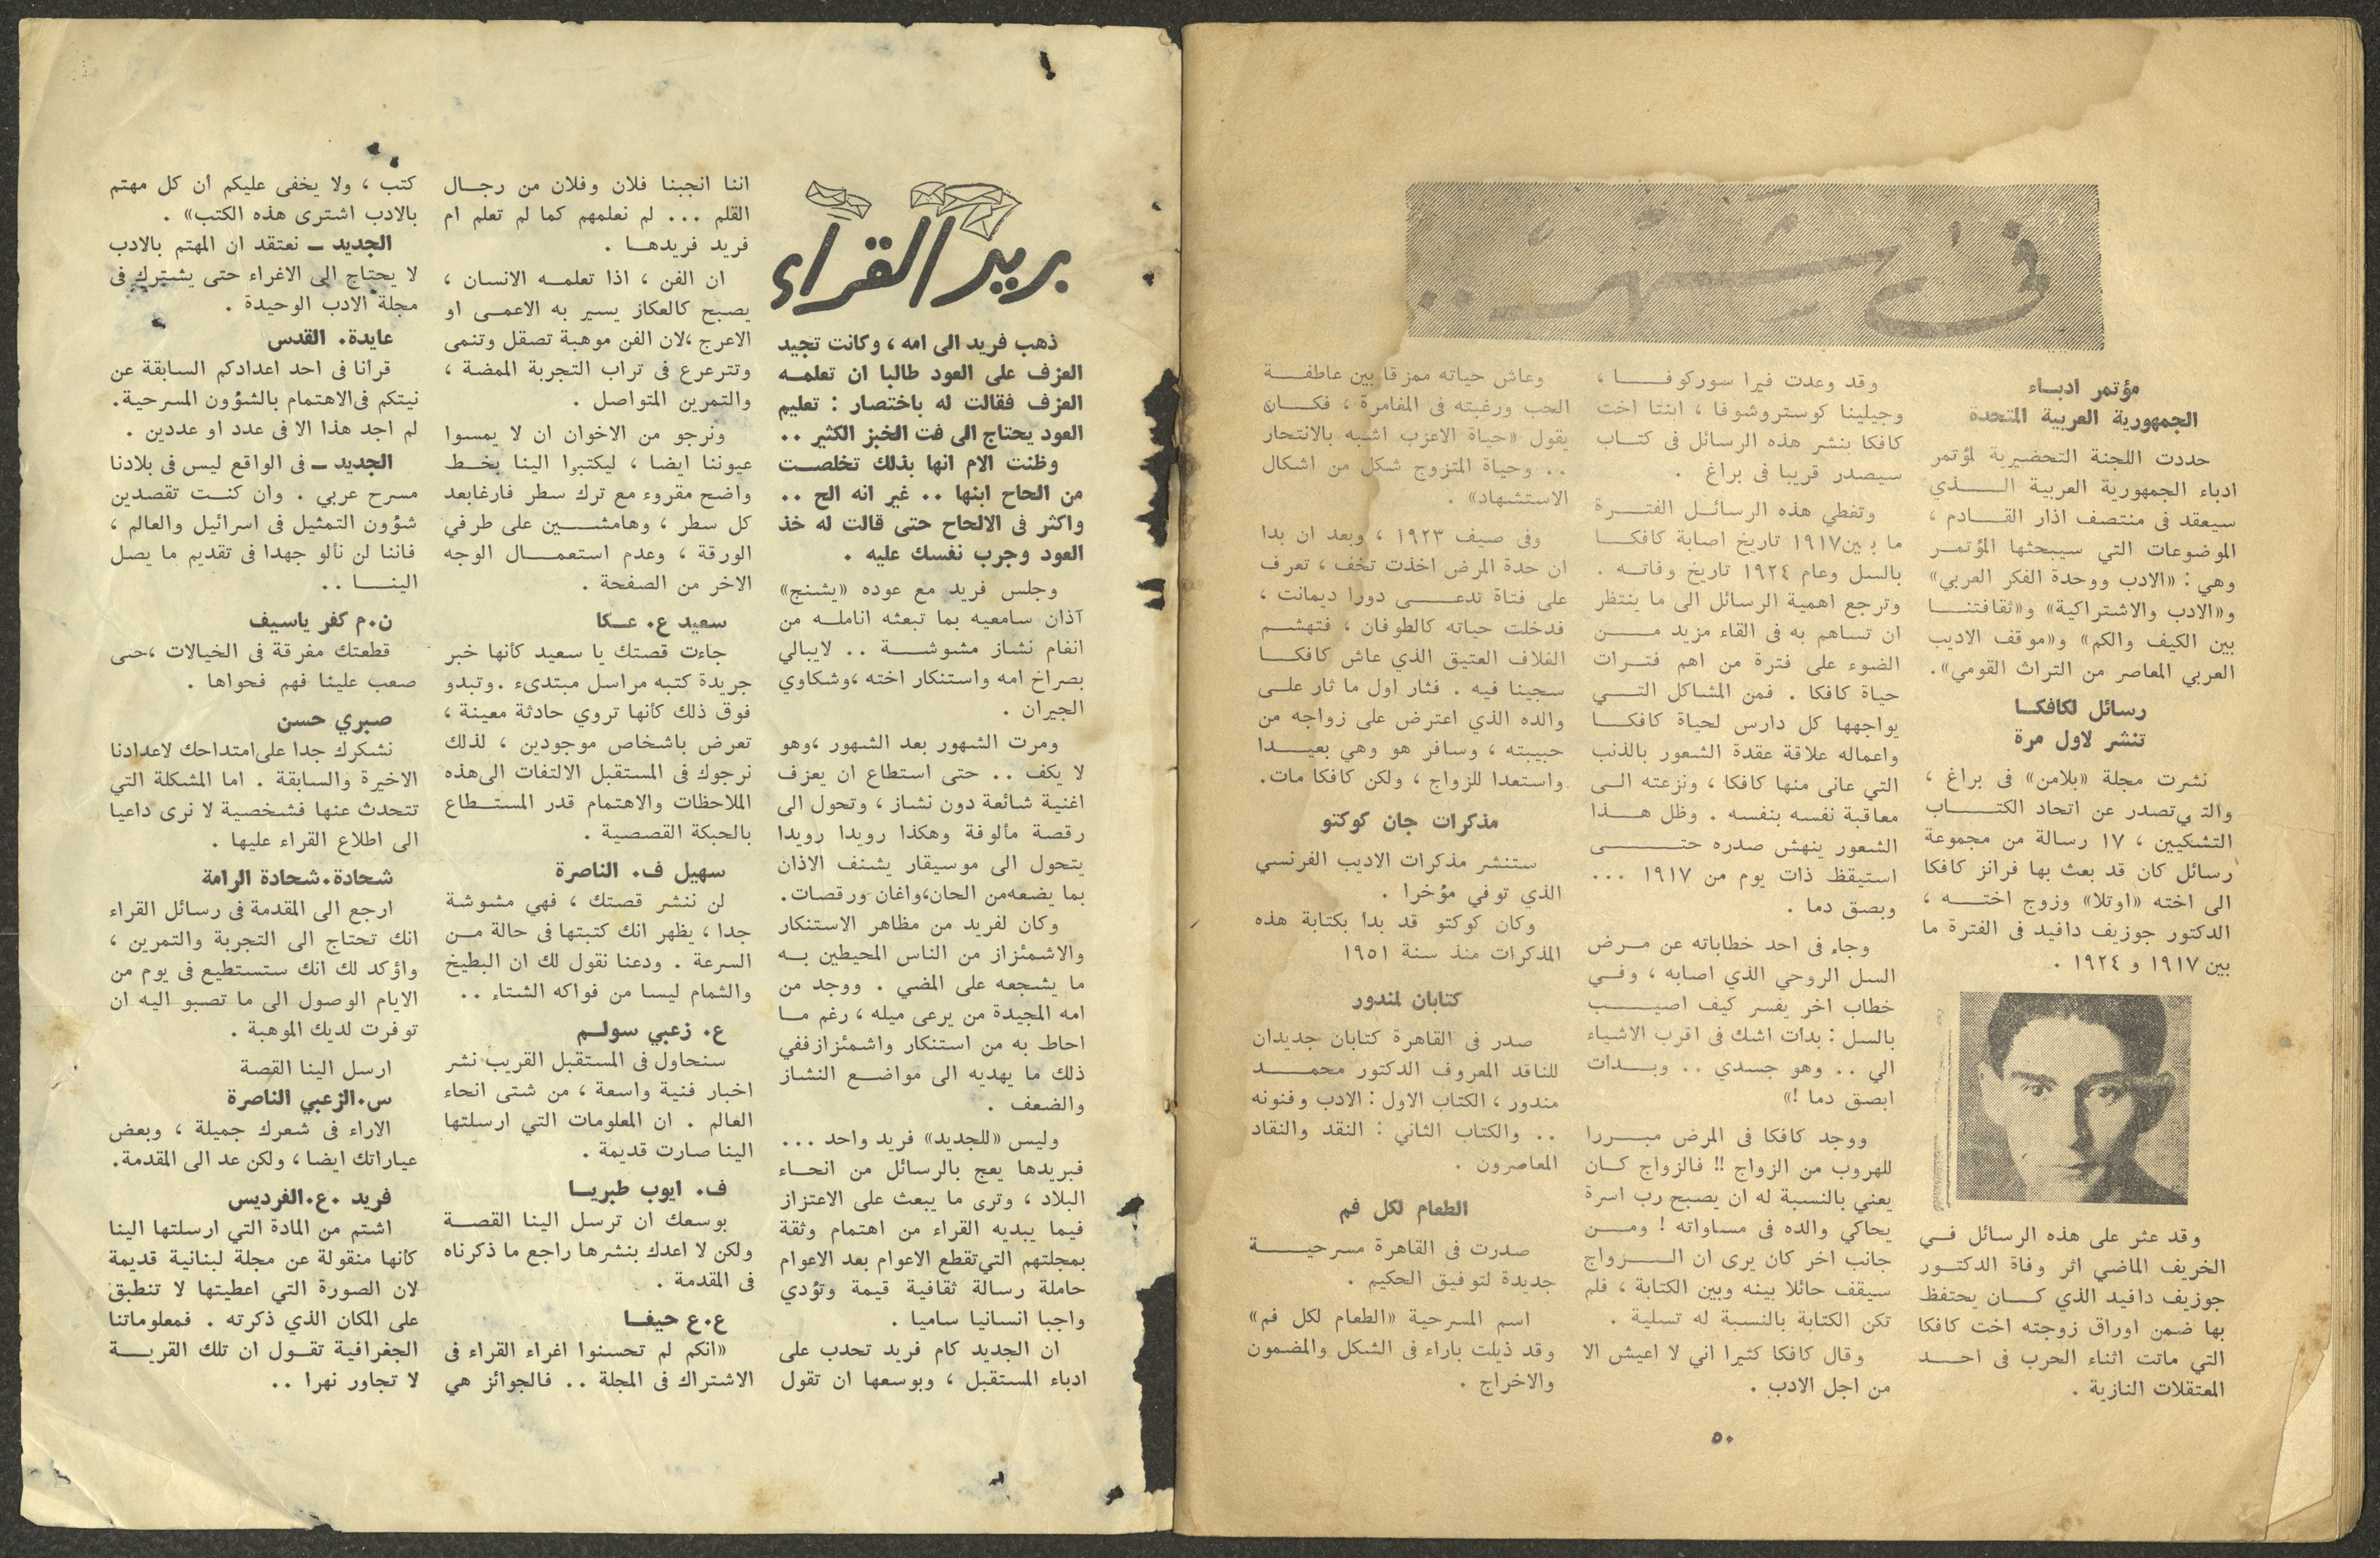 في شهر ..
مؤتمر ادبـاء
الجمهورية العربية المتحدة
حددت اللجنة التحضيرية لمؤتمر
ادباء الجمهورية العربية الـــذي
سيعقد في منتصف اذار القــادم ،
الموضوعات التي سيبحثها المؤتمـر
وهي : «الادب ووحدة الفكر العربي»
و«الادب والاشتراكية» و«ثقافتنــا
بين الكيف والكم» و«موقف الاديب
العربي المعاصر من التراث القومي».
رسائل لكافكـا
تنشر لاول مرة
نشرت مجلة «بلامن» في براغ ،
والتي تصدر عن اتحاد الكتــاب
التشكيين ، ١٧ رسالة من مجموعة
رسائل كان قد بعث بها فرانز كافكا
الى اخته «اوتلا» وزوج اختــه ،
الدكتور جوزيف دافيد في الفترة ما
بين ١٩١٧ و ١٩٢٤ .
وقد عثر على هذه الرسائل فــي
الخريف الماضي اثر وفاة الدكتــور
جوزيف دافيد الذي كــان يحتفظ
بها ضمن اوراق زوجته اخت كافكا
التي ماتت اثناء الحرب في احــد
المعتقلات النازية .
وقد وعدت فيرا سوركوفــا ،
وجيلينا كوستروشوفا ، ابنتا اخت
كافكا بنشر هذه الرسائل في كتــاب
سيصدر قريبا في براغ .
وتغطي هذه الرسائــل الفتــرة
ما بين ١٩١٧ تاريخ اصابة كافكــا
بالسل وعام ١٩٢٤ تاريخ وفاتــه .
وترجع اهمية الرسائل الى ما ينتظر
ان تساهم به في القاء مزيد مــن
الضوء على فترة من اهم فتــرات
حياة كافكا . فمن المشاكل التــي
يواجهها كل دارس لحياة كافكــا
واعماله علاقة عقدة الشعور بالذنب
التي عانى منها كافكا ، ونزعته الــى
معاقبة نفسه بنفسه . وظل هــذا
الشعور ينهش صدره حتــــى
استيقظ ذات يوم من ١٩١٧ ...
وبصق دما .
وجاء في احد خطاباته عن مــرض
السل الروحي الذي اصابه ، وفــي
خطاب اخر يفسر كيف اصيــب
بالسل : بدأت اشك في اقرب الاشياء
الي .. وهو جسدي .. وبــدات
ابصق دما !»
ووجد كافكا في المرض مبــررا
للهروب من الزواج !! فالزواج كــان
يعني بالنسبة له ان يصبح رب اسرة
يحاكي والده في مساواته ! ومــن
جانب اخر كان يرى ان الــزواج
سيقف حائلا بينه وبين الكتابة ، فلم
تكن الكتابة بالنسبة له تسلية .
وقال كافكا كثيرا اني لا اعيش الا
من اجل الادب .
وعاش حياته ممزقا بين عاطفــة
الحب ورغبته في المغامرة ، فكــان
يقول «حياة الاعزب اشبه بالانتحار
.. وحياة المتزوج شكل من اشكال
الاستشهاد» .
وفي صيف ١٩٢٣ ، وبعد ان بدا
ان حدة المرض اخذت تخف ، تعرف
على فتاة تدعـــى دورا ديمانت ،
فدخلت حياته كالطوفان ، فتهشــم
الغلاف العتيق الذي عاش كافكــا
سجينا فيه . فثار اول ما ثار علــى
والده الذي اعترض على زواجه من
حبيبته ، وسافر هو وهي بعيــدا
واستعدا للزواج ، ولكن كافكا مات.
مذكرات جان كوكتو
ستنشر مذكرات الاديب الفرنسي
الذي توفي مؤخرا .
وكان كوكتو قد بدا بكتابة هذه
المذكرات منذ سنة ١٩٥١
كتابان لمندور
صدر في القاهرة كتابان جديدان
للناقد المعروف الدكتور محمــد
مندور ، الكتاب الاول : الادب وفنونه
.. والكتاب الثاني : النقد والنقاد
المعاصرون .
الطعام لكل فم
صدرت في القاهرة مسرحيــة
جديدة لتوفيق الحكيم .
اسم المسرحية «الطعام لكل فم»
وقد ذيلت باراء في الشكل والمضمون
والاخراج .
٥٠
بريد القراء
ذهب فريد الى امه ، وكانت تجيد
العزف على العود طالبا ان تعلمــه
العزف فقالت له باختصار : تعليم
العود يحتاج الى فت الخبز الكثير ..
وظنت الام انها بذلك تخلصــت
من الحاح ابنها .. غير انه الح ..
واكثر في الالحاح حتى قالت له خذ
العود وجرب نفسك عليه .
وجلس فريد مع عوده «يشنج»
آذان سامعيه بما تبعثه اناملــه من
انغام نشاز مشوشــة .. لايبالي
بصراخ امه واستنكار اخته ،وشكاوي
الجيران .
ومرت الشهور بعد الشهور ،وهو
لا يكف .. حتى استطاع ان يعزف
اغنية شائعة دون نشاز ، وتحول الى
رقصة مألوفة وهكذا رويدا رويدا
يتحول الى موسيقار يشنف الاذان
بما يضعه من الحان ،واغان ورقصات.
وكان لفريد من مظاهر الاستنكار
والاشمئزاز من الناس المحيطين بــه
ما يشجعه على المضي . ووجد من
امه المجيدة من يرعى ميله ، رغم مــا
احاط به من استنكار واشمئزاز ففي
ذلك ما يهديه الى مواضــع النشاز
والضعف .
وليس «للجديد» فريد واحد ...
فبريدها يعج بالرسائل من انحــاء
البلاد ، وترى ما يبعث على الاعتزاز
فيما يبديه القراء من اهتمام وثقة
بمجلتهم التي تقطع الاعوام بعد الاعوام
حاملة رسالة ثقافية قيمة وتؤدي
واجبا انسانيا ساميا .
ان الجديد كام فريد تحدب على
ادباء المستقبل ، وبوسعها ان تقول
اننا انجبنا فلان وفلان من رجــال
القلم ... لم نعلمهم كما لم تعلم ام
فريد فريدهــا .
ان الفن ، اذا تعلمــه الانسان ،
يصبح كالعكاز يسير به الاعمــى او
الاعرج ،لان الفن موهبة تصقل وتنمى
وتترعرع في تراب التجربة الممضة ،
والتمرين المتواصل .
ونرجو من الاخوان ان لا يمسوا
عيوننا ايضا ، ليكتبوا الينا بخــط
واضح مقروء مع ترك سطر فارغا بعد
كل سطر ، وهامشــين على طرفي
الورقة ، وعدم استعمــال الوجه
الاخر من الصفحة .
سعيد ع. عــكا
جاءت قصتك يا سعيد كأنها خبر
جريدة كتبه مراسل مبتدىء . وتبدو
فوق ذلك كأنها تروي حادثة معينة ،
تعرض باشخاص موجودين ، لذلك
نرجوك في المستقبل الالتفات الى هذه
الملاحظات والاهتمام قدر المستــطاع
بالحبكة القصصية .
سهيل ف. الناصرة
لن ننشر قصتك ، فهي مشوشة
جدا ، يظهر انك كتبتها في حالة مــن
السرعة . ودعنا نقول لك ان البطيخ
والشمام ليسا من فواكه الشتاء ..
ع. زعبي سولــم
سنحاول في المستقبل القريب نشر
اخبار فنية واسعة ، من شتى انحاء
العالم . ان المعلومات التي ارسلتها
الينا صارت قديمة .
ف. ايوب طبريــا
بوسعك ان ترسل الينا القصــة
ولكن لا اعدك بنشرها راجع ما ذكرناه
في المقدمة .
ع.ع حيفــا
«انكم لم تحسنوا اغراء القراء في
الاشتراك في المجلة .. فالجوائز هي
كتب ، ولا يخفى عليكم ان كل مهتم
بالادب اشترى هذه الكتب» .
الجديد ــ نعتقد ان المهتم بالادب
لا يحتاج الى الاغراء حتى يشترك في
مجلة الادب الوحيدة .
عايدة. القدس
قرأنا في احد اعدادكم السابقة عن
نيتكم في الاهتمام بالشؤون المسرحية.
لم اجد هذا الا في عدد او عددين .
الجديد ــ في الواقع ليس في بلادنا
مسرح عربي . وان كنــت تقصدين
شؤون التمثيل في اسرائيل والعالم ،
فاننا لن نألو جهدا في تقديم ما يصل
الينــا ..
ن.م كفر ياسيف
قطعتك مغرقة في الخيالات ،حتى
صعب علينا فهم فحواها .
صبري حسن
نشكرك جدا على امتداحك لاعدادنا
الاخيرة والسابقة . اما المشكلة التي
تتحدث عنها فشخصية لا نرى داعيا
الى اطلاع القراء عليها .
شحادة.شحادة الرامة
ارجع الى المقدمة في رسائل القراء
انك تحتاج الى التجربة والتمرين ،
واؤكد لك انك ستستطيع في يوم من
الايام الوصول الى ما تصبو اليه ان
توفرت لديك الموهبة .
ارسل الينا القصة
س.الزعبي الناصرة
الاراء في شعرك جميلة ، وبعض
عباراتك ايضا ، ولكن عد الى المقدمة.
فريد .ع.الفرديس
اشتم من المادة التي ارسلتها الينا
كأنها منقولة عن مجلة لبنانية قديمة
لان الصورة التي اعطيتها لا تنطبق
على المكان الذي ذكرته . فمعلوماتنا
الجغرافية تقــول ان تلك القريــة
لا تجاور نهرا ..